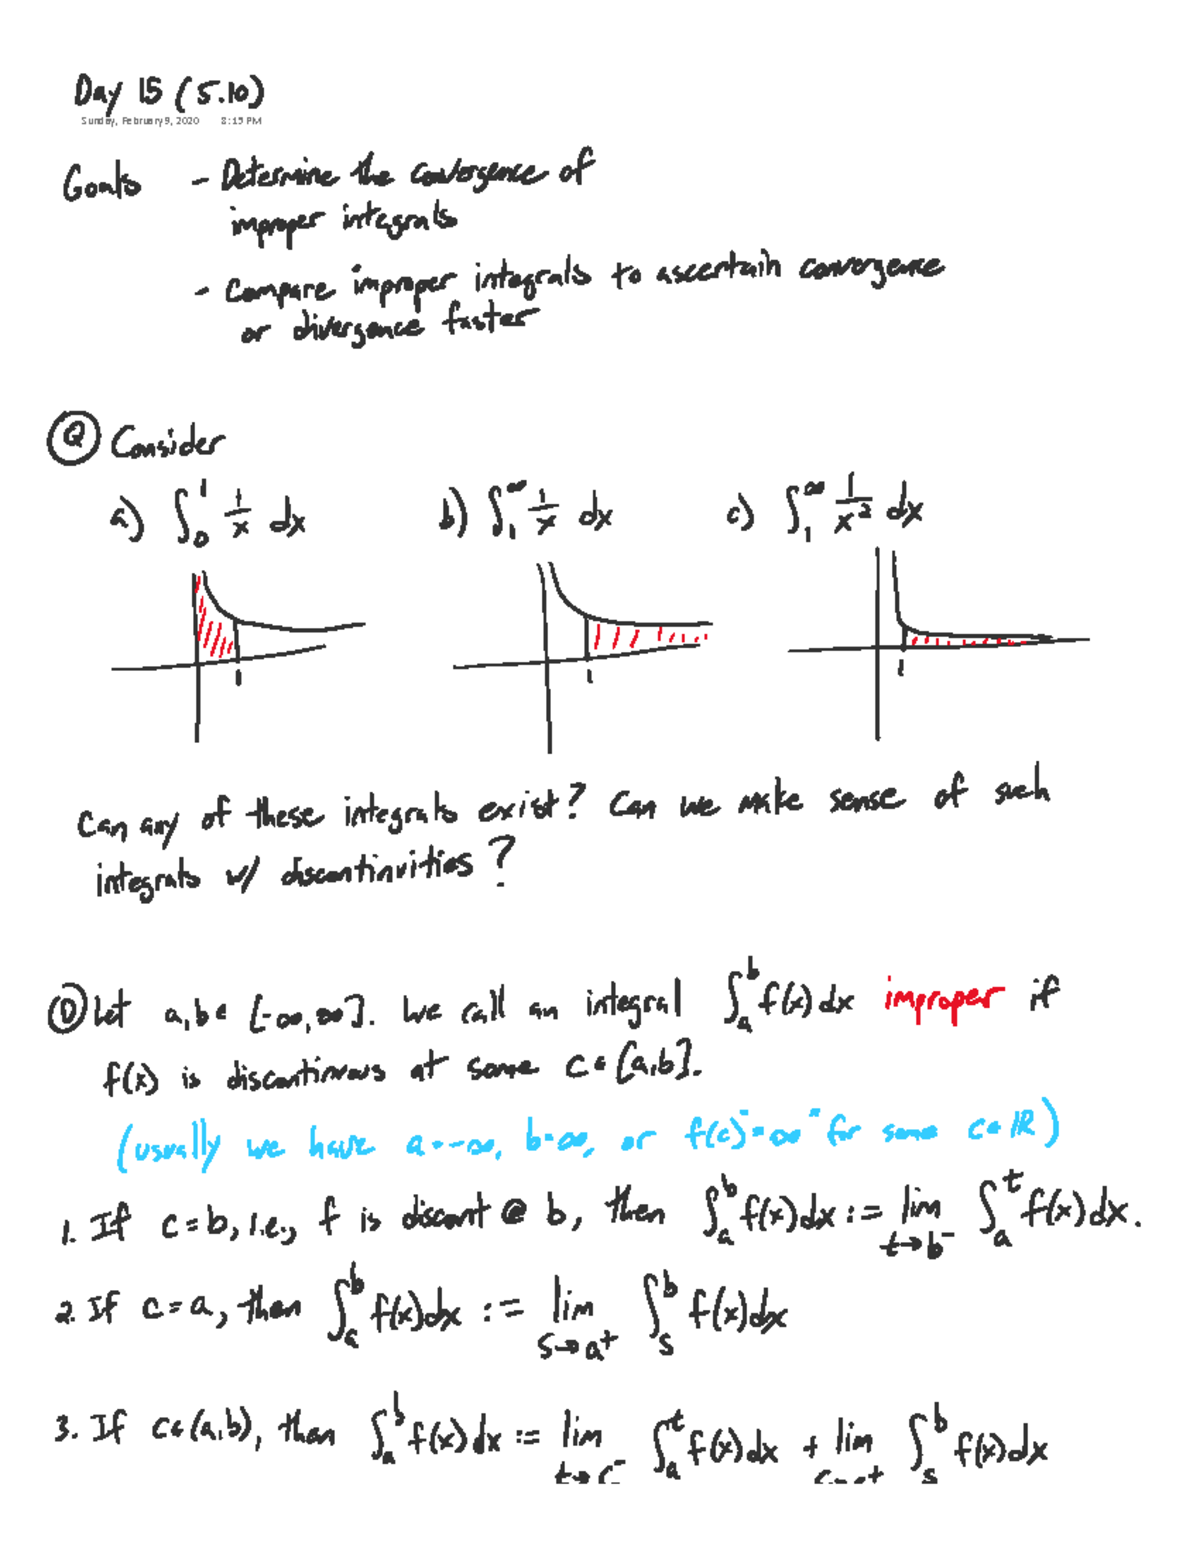 Day 15 (5.10)
Sunday, February 9, 2020 8:15 PM
Goals - Determine the convergence of
improper integrals
- Compare improper integrals to ascertain convergence
or divergence faster
Q Consider
a) ∫₀¹ 1/x dx b) ∫₁^∞ 1/x dx c) ∫₁^∞ 1/x² dx
1 1 1
Can any of these integrals exist? Can we make sense of such
integrals w/ discontinuities?
D Let a,b ∈ [-∞,∞]. We call an integral ∫ₐᵇ f(x) dx improper if
f(x) is discontinuous at some c ∈ [a,b].
(usually we have a=-∞, b=∞, or f(c)"=∞" for some c∈ℝ)
1. If c=b, i.e., f is discont @ b, then ∫ₐᵇ f(x)dx := lim t→b⁻ ∫ₐᵗ f(x)dx.
2. If c=a, then ∫ₐᵇ f(x)dx := lim s→a⁺ ∫ₛᵇ f(x)dx
3. If c∈(a,b), then ∫ₐᵇ f(x)dx := lim t→c⁻ ∫ₐᵗ f(x)dx + lim s→c⁺ ∫ₛᵇ f(x)dx